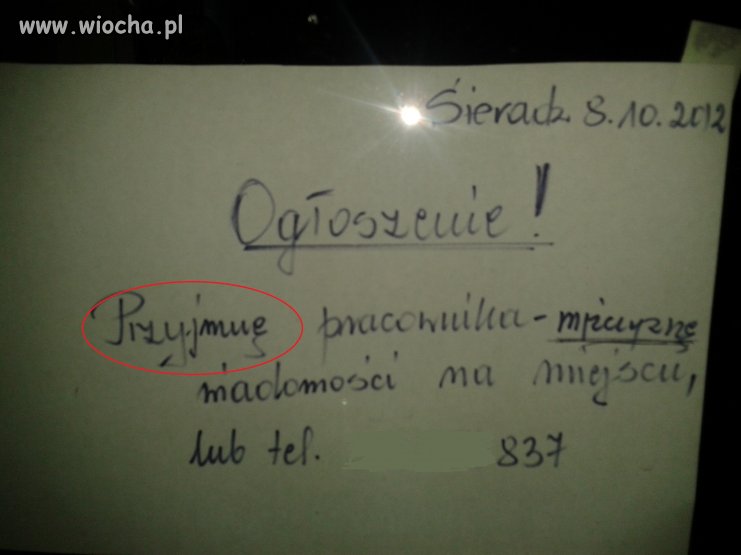 www.wiocha.pl
Sieradz. 8.10.2012
Ogłoszenie!
Przyjmuę pracownika - mężczyznę
wiadomości na miejscu,
lub tel. 837